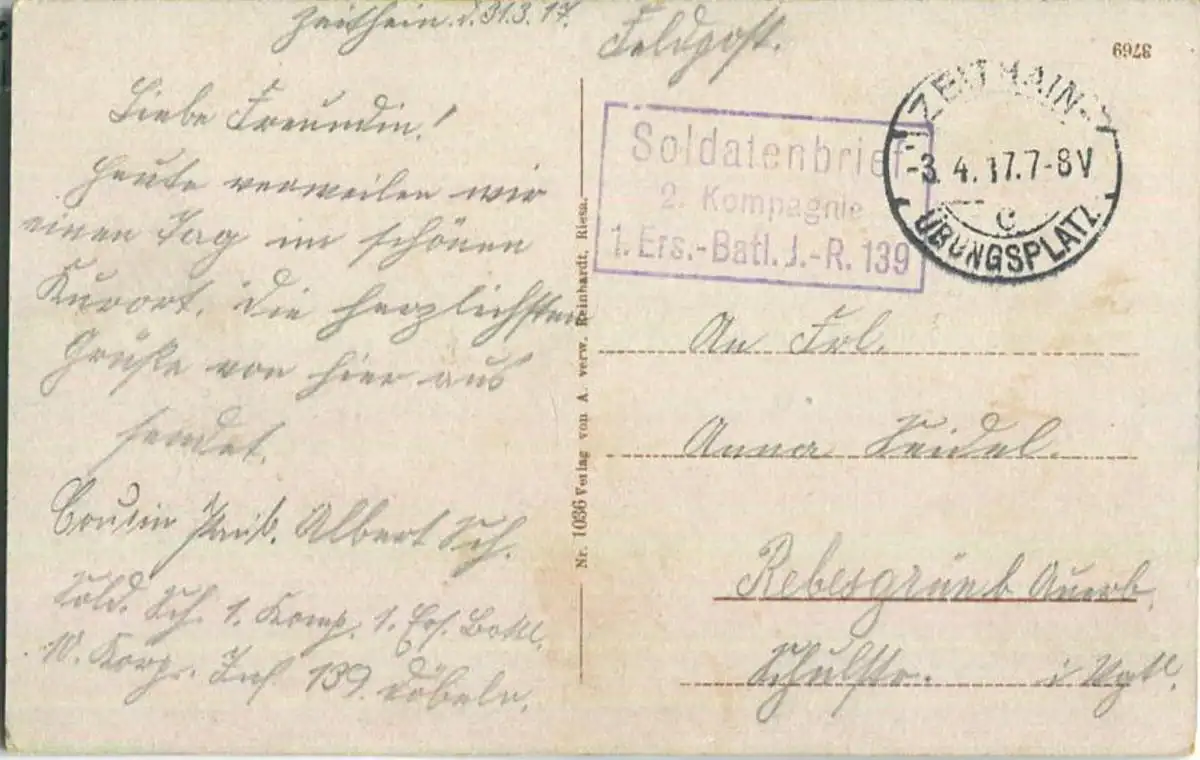 Zeithain. d. 31.3.17.
Liebe Freundin!
Heute verweilen wir
einen Tag im schönen
Kurort. Die herzlichsten
Grüße von hier aus
sendet.
Cousin Albert Sch.
Sold. Sch. 1. Komp. 1. Ers. Batl.
Inf. 139 Döbeln.
Nr. 1036 Verlag von A. verw. Reinhardt, Riesa.
Feldpost.
3769
Soldatenbrief
2. Kompagnie
1. Ers.-Batl. J.-R. 139
ZEITHAIN
-3.4.17.7-8V
c
ÜBUNGSPLATZ
An Frl.
Anna Seidel.
Rebesgrün b Auerb.
Schulstr. i Vgtl.